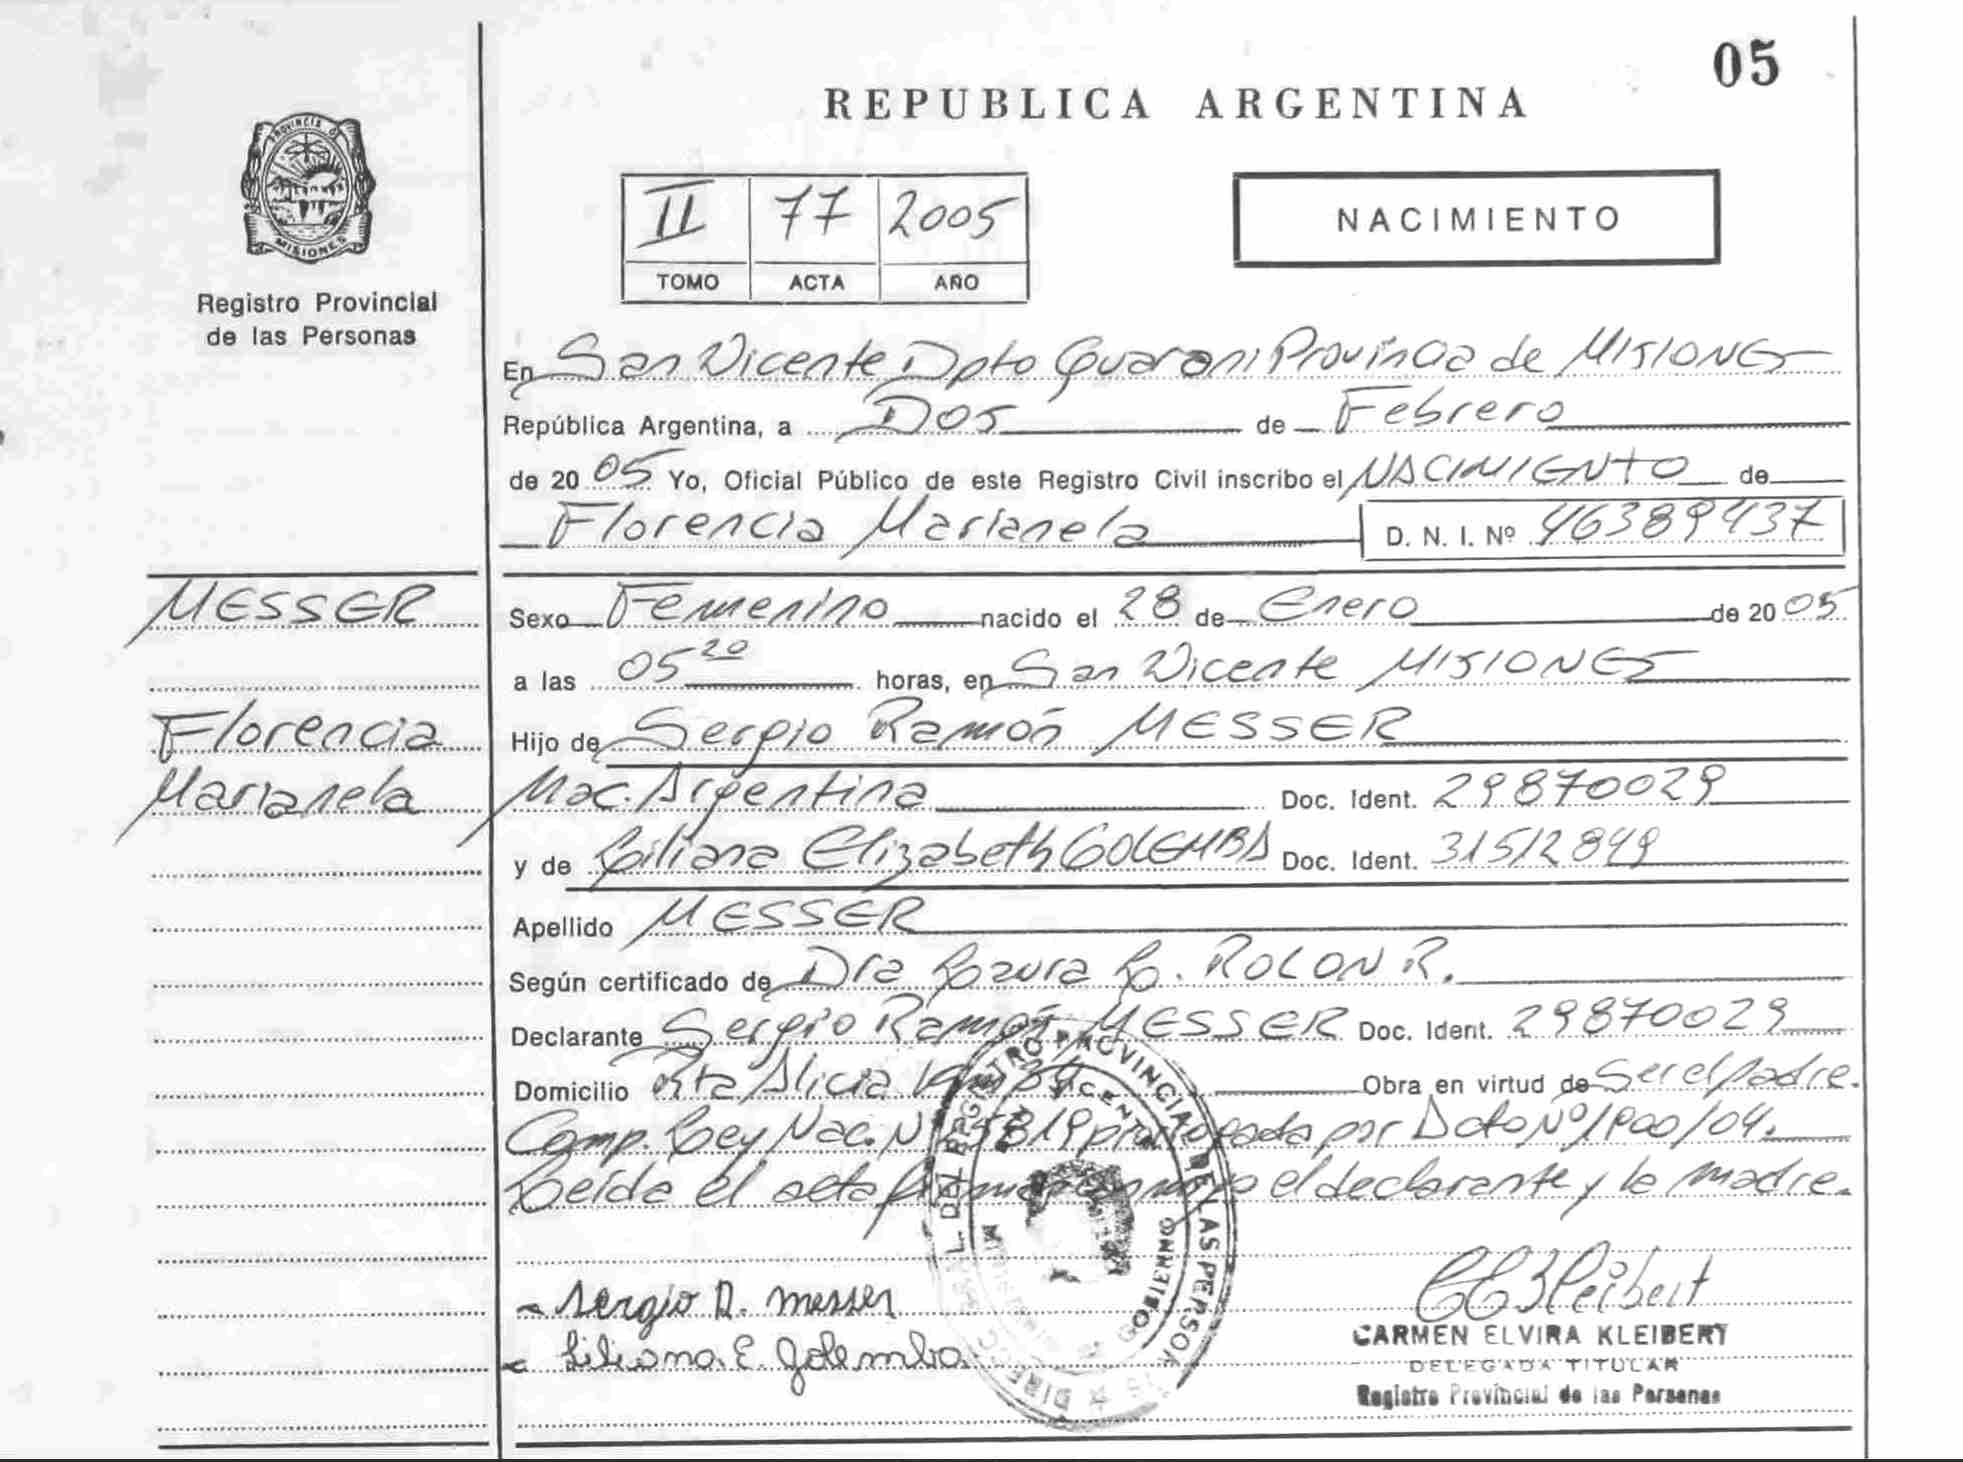 05
REPUBLICA ARGENTINA
PROVINCIA D
MISIONES
Registro Provincial
de las Personas
II 77 2005
TOMO ACTA AÑO
NACIMIENTO
En San Vicente Dpto Guarani Provincia de MISIONES
República Argentina, a DOS de Febrero
de 2005 Yo, Oficial Público de este Registro Civil inscribo el NACIMIENTO de
Florencia Marianela D. N. I. Nº 46389437
MESSER
Florencia
Marianela
Sexo Femenino nacido el 28 de Enero de 2005
a las 05 20 horas, en San Vicente MISIONES
Hijo de Sergio Ramón MESSER
Nac. Argentina Doc. Ident. 29870029
y de Liliana Elizabeth GOLEMBA Doc. Ident. 31512849
Apellido MESSER
Según certificado de Dra Laura L. ROLON R.
Declarante Sergio Ramón MESSER Doc. Ident. 29870029
Domicilio Pto Alicia Obra en virtud de Ser el padre.
Comp. Ley Nac. Nº prorrogada por Dcto Nº 1900/04.
Leída el acta el declarante y la madre.
Sergio R. Messer
Liliana E. Golemba
CARMEN ELVIRA KLEIBERT
DELEGADA TITULAR
Registro Provincial de las Personas